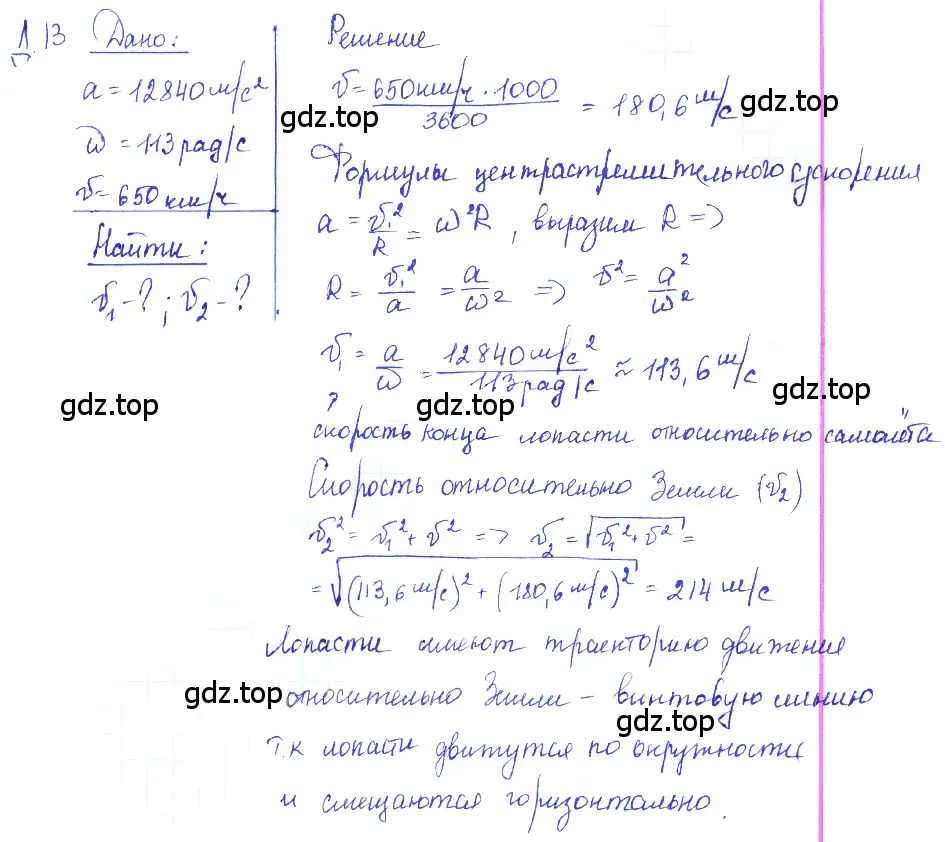 Д.13 Дано:
a = 12840 м/с²
ω = 113 рад/с
v = 650 км/ч
Найти:
v₁ - ? ; v₂ - ?
Решение
v = 650 км/ч · 1000 / 3600 = 180,6 м/с
gdz.top gdz.top
Формулы центрастремительного ускорения
a = v₁²/R = ω²R , выразим R =>
R = v₁²/a = a/ω² => v² = a²/ω²
v₁ = a/ω = 12840 м/с² / 113 рад/с ≈ 113,6 м/с
gdz.top gdz.top gdz.top
скорость конца лопасти относительно самолёта
Скорость относительно Земли (v₂)
v₂² = v₁² + v² => v₂ = √(v₁² + v²) =
= √((113,6 м/с)² + (180,6 м/с)²) = 214 м/с
Лопасти имеют траекторию движения
gdz.top относительно Земли – винтовую линию
gdz.top
т.к лопасти движутся по окружности
и смещаются горизонтально.